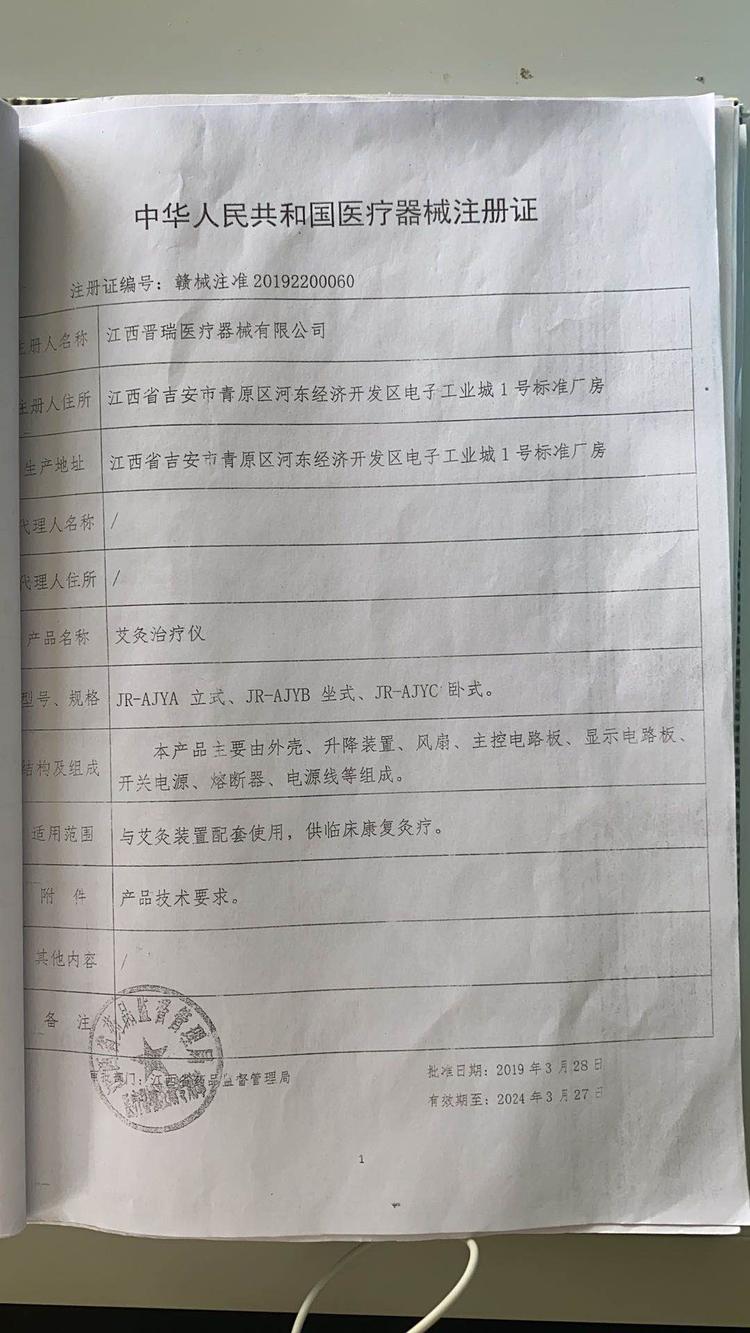 中华人民共和国医疗器械注册证
注册证编号：赣械注准20192200060
注册人名称 江西晋瑞医疗器械有限公司
注册人住所 江西省吉安市青原区河东经济开发区电子工业城1号标准厂房
生产地址 江西省吉安市青原区河东经济开发区电子工业城1号标准厂房
代理人名称 /
代理人住所 /
产品名称 艾灸治疗仪
型号、规格 JR-AJYA 立式、JR-AJYB 坐式、JR-AJYC 卧式。
结构及组成 本产品主要由外壳、升降装置、风扇、主控电路板、显示电路板、
开关电源、熔断器、电源线等组成。
适用范围 与艾灸装置配套使用，供临床康复灸疗。
附 件 产品技术要求。
其他内容 /
备 注
审批部门：江西省药品监督管理局
批准日期：2019年3月28日
有效期至：2024年3月27日
江西省药品监督管理局
1